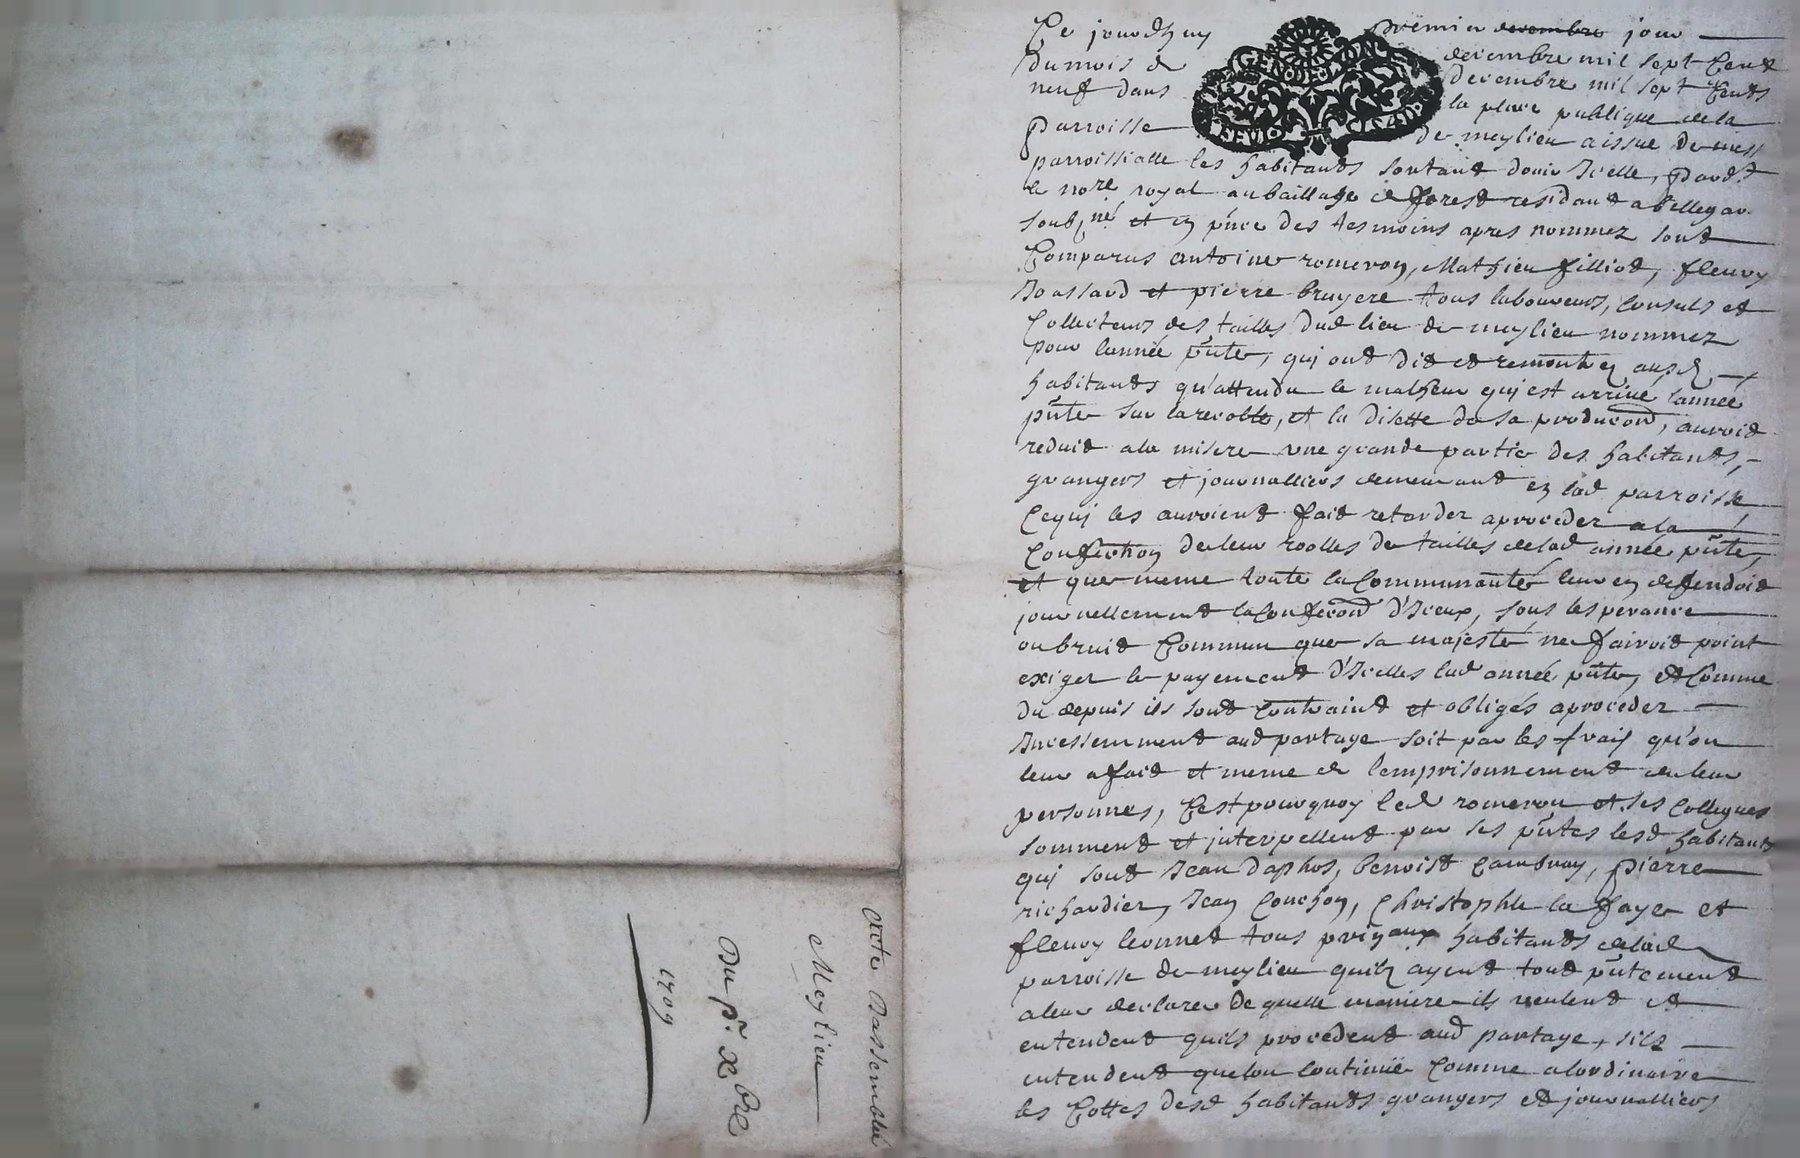 Ce jourdhuy premier decembre jour
du mois de decembre mil sept Cent
neuf dans decembre mil sept Cents
la place publique de la
parroisse de meylieu a issue de mess
parroissialle les habitants sortant d'ouir Icelle, pard.t
le no.re royal au baillage de forest residant a bellegar
soub.né et en p̃nce des tesmoins apres nommez sont
Comparus antoine romeron, Mathieu filliod, fleury
Joassard et pierre bruyere tous laboureurs, Consuls et
Collecteurs des tailles dud lieu de meylieu nommez
pour lannée p̃nte, qui ont dit et remontré ausd
habitants qu'attendu le malheur qui est arrivé lannée
p̃nte sur la recolte, et la disette de sa producõn, auroit
reduit a la misere une grande partie des habitants,
grangers et journalliers demeurant en lad parroisse
Cequi les auroient fait retarder a proceder a la
Confection de leur roolles de tailles de lad année p̃nte,
et que meme toute la Communauté leur en deffendoit
journellement la Confecõn d'Iceux, sous lesperance
ou bruit Commun que sa majesté ne fairoit point
exiger le payement d'Icelles lad année p̃nte, et Comme
du depuis ils sont Contraint et obligés a proceder
Incessemment aud partage soit par les frais qu'on
leur a fait et meme de l'emprisonnement de leur
personnes, C'est pourquoy led romeron et ses Collegues
somment et interpellent par ses p̃ntes lesd habitants
qui sont Jean Daphos, benoist Cambray, pierre
richardier, Jean Couchon, Christophle la faye et
fleury leonnet tous prinaux habitants de lad
parroisse de meylieu quils ayent tout p̃ntement
a leur declarer de quelle maniere ils veulent et
entendent quils procedent aud partage, sils
entendent quelon Continüe Comme a lordinaire
les Cottes desd habitants grangers et journalliers
Acte Dassemblée
Meylieu
Du p.r xbre
1709